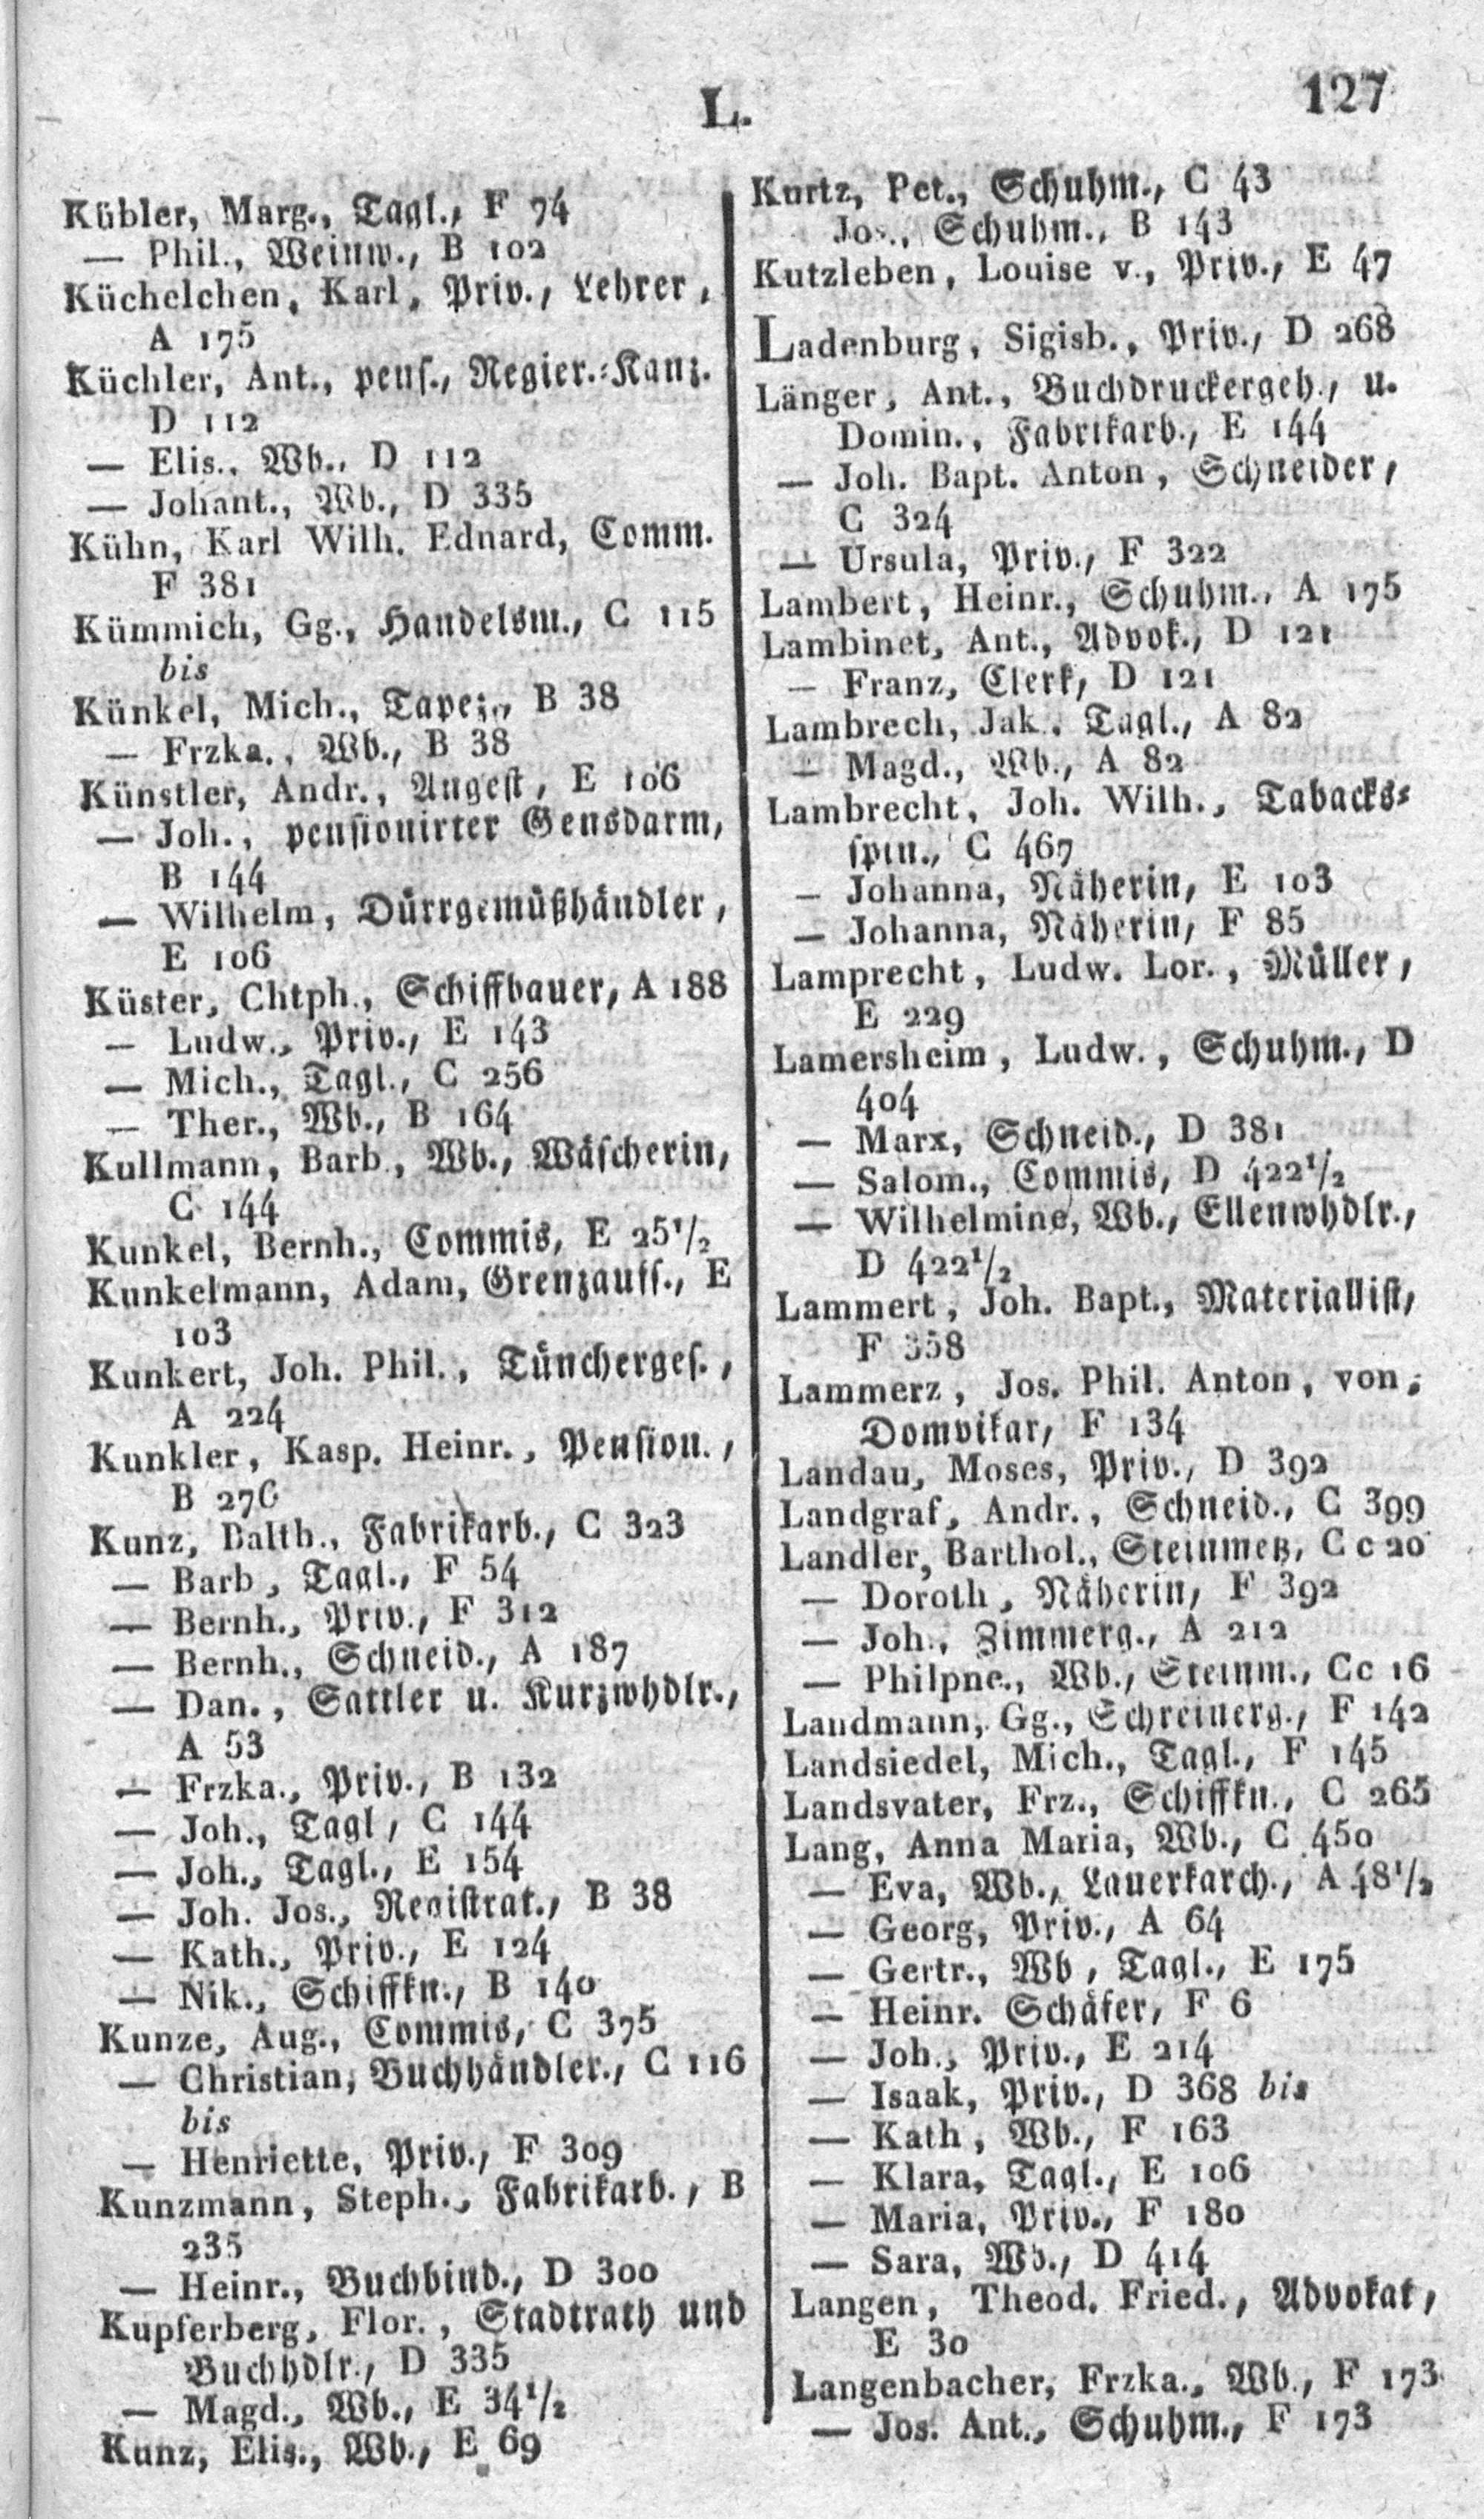 L.
127
Kübler, Marg., Tagl., F 74
— Phil., Weinw., B 102
Küchelchen, Karl, Priv., Lehrer,
A 175
Küchler, Ant., pens., Regier.=Kanz.
D 112
— Elis., Wb., D 112
— Johant., Wb., D 335
Kühn, Karl Wilh. Ednard, Comm.
F 381
Kümmich, Gg., Handelsm., C 115
bis
Künkel, Mich., Tapez., B 38
— Frzka., Wb., B 38
Künstler, Andr., Angest, E 106
— Joh., pensionirter Gensdarm,
B 144
— Wilhelm, Dürrgemüßhändler,
E 106
Küster, Chtph., Schiffbauer, A 188
— Ludw., Priv., E 143
— Mich., Tagl., C 256
— Ther., Wb., B 164
Kullmann, Barb., Wb., Wäscherin,
C 144
Kunkel, Bernh., Commis, E 25 1/2
Kunkelmann, Adam, Grenzauff., E
103
Kunkert, Joh. Phil., Tüncherges.,
A 224
Kunkler, Kasp. Heinr., Pension.,
B 276
Kunz, Balth., Fabrikarb., C 323
— Barb, Tagl., F 54
— Bernh., Priv., F 312
— Bernh., Schneid., A 187
— Dan., Sattler u. Kurzwhdlr.,
A 53
— Frzka., Priv., B 132
— Joh., Tagl, C 144
— Joh., Tagl., E 154
— Joh. Jos., Registrat., B 38
— Kath., Priv., E 124
— Nik., Schiffkn., B 140
Kunze, Aug., Commis, C 375
— Christian, Buchhändler., C 116
bis
— Henriette, Priv., F 309
Kunzmann, Steph., Fabrikarb., B
235
— Heinr., Buchbind., D 300
Kupferberg, Flor., Stadtrath und
Buchhdlr., D 335
— Magd., Wb., E 34 1/2
Kunz, Elis., Wb., E 69
Kurtz, Pet., Schuhm., C 43
Jos., Schuhm., B 143
Kutzleben, Louise v., Priv., E 47
Ladenburg, Sigisb., Priv., D 268
Länger, Ant., Buchdruckergeh., u.
Domin., Fabrikarb., E 144
— Joh. Bapt. Anton, Schneider,
C 324
— Ursula, Priv., F 322
Lambert, Heinr., Schuhm., A 175
Lambinet, Ant., Advok., D 121
— Franz, Clerk, D 121
Lambrech, Jak., Tagl., A 82
— Magd., Wb., A 82
Lambrecht, Joh. Wilh., Tabacks=
spin., C 467
— Johanna, Näherin, E 103
— Johanna, Näherin, F 85
Lamprecht, Ludw. Lor., Müller,
E 229
Lamersheim, Ludw., Schuhm., D
404
— Marx, Schneid., D 381
— Salom., Commis, D 422 1/2
— Wilhelmine, Wb., Ellenwhdlr.,
D 422 1/2
Lammert, Joh. Bapt., Materiallist,
F 358
Lammerz, Jos. Phil. Anton, von,
Domvikar, F 134
Landau, Moses, Priv., D 392
Landgraf, Andr., Schneid., C 399
Landler, Barthol., Steinmetz, C c 20
— Doroth, Näherin, F 392
— Joh., Zimmerg., A 212
— Philpne., Wb., Steinm., Cc 16
Landmann, Gg., Schreinerg., F 142
Landsiedel, Mich., Tagl., F 145
Landsvater, Frz., Schiffkn., C 265
Lang, Anna Maria, Wb., C 450
— Eva, Wb., Lauerkarch., A 48 1/2
— Georg, Priv., A 64
— Gertr., Wb, Tagl., E 175
— Heinr. Schäfer, F 6
— Joh., Priv., E 214
— Isaak, Priv., D 368 bis
— Kath, Wb., F 163
— Klara, Tagl., E 106
— Maria, Priv., F 180
— Sara, Wb., D 414
Langen, Theod. Fried., Advokat,
E 30
Langenbacher, Frzka., Wb., F 173
— Jos. Ant., Schuhm., F 173